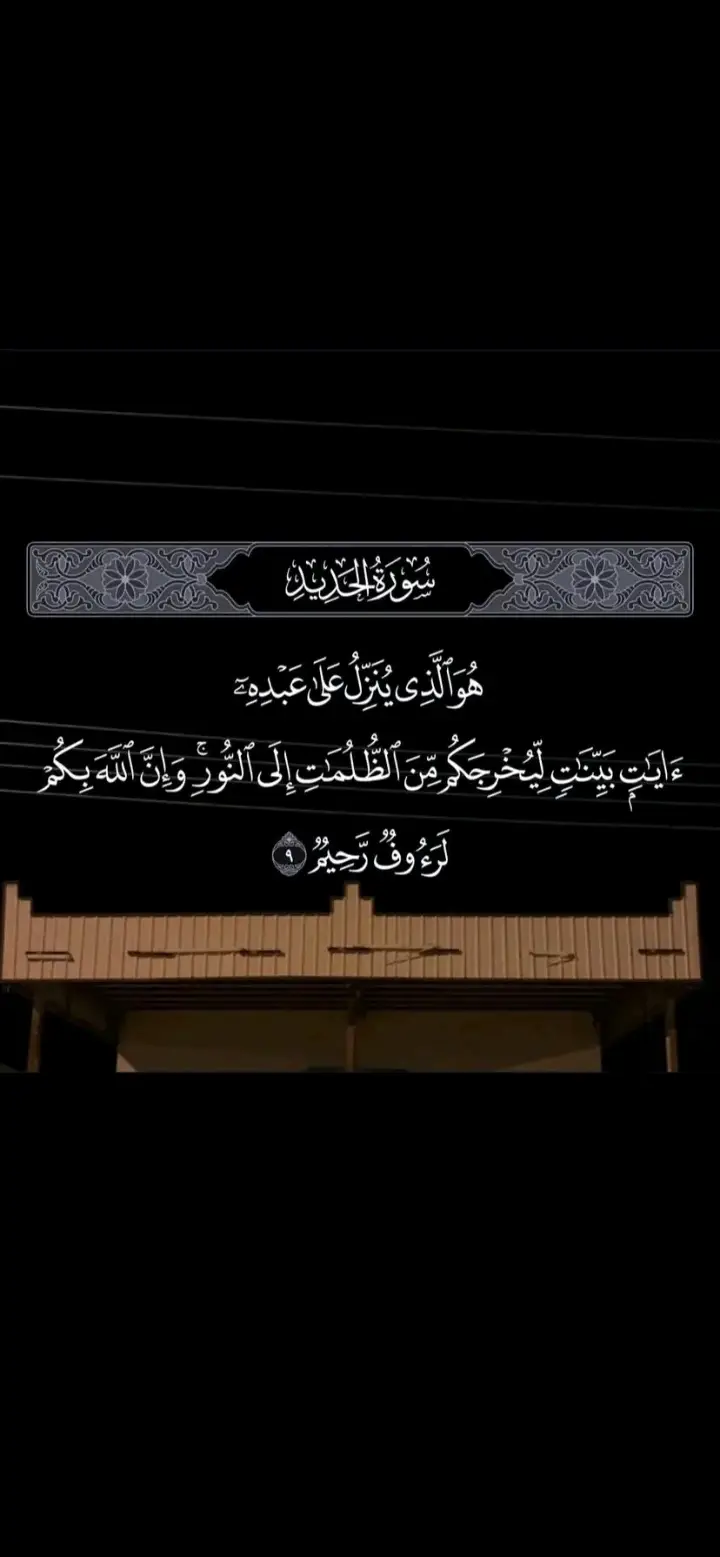 سُورَةُ الحَدِيدِ
هُوَ ٱلَّذِى يُنَزِّلُ عَلَىٰ عَبْدِهِۦٓ
ءَايَٰتٍۭ بَيِّنَٰتٍ لِّيُخْرِجَكُم مِّنَ ٱلظُّلُمَٰتِ إِلَى ٱلنُّورِ ۚ وَإِنَّ ٱللَّهَ بِكُمْ
لَرَءُوفٌ رَّحِيمٌ ٩